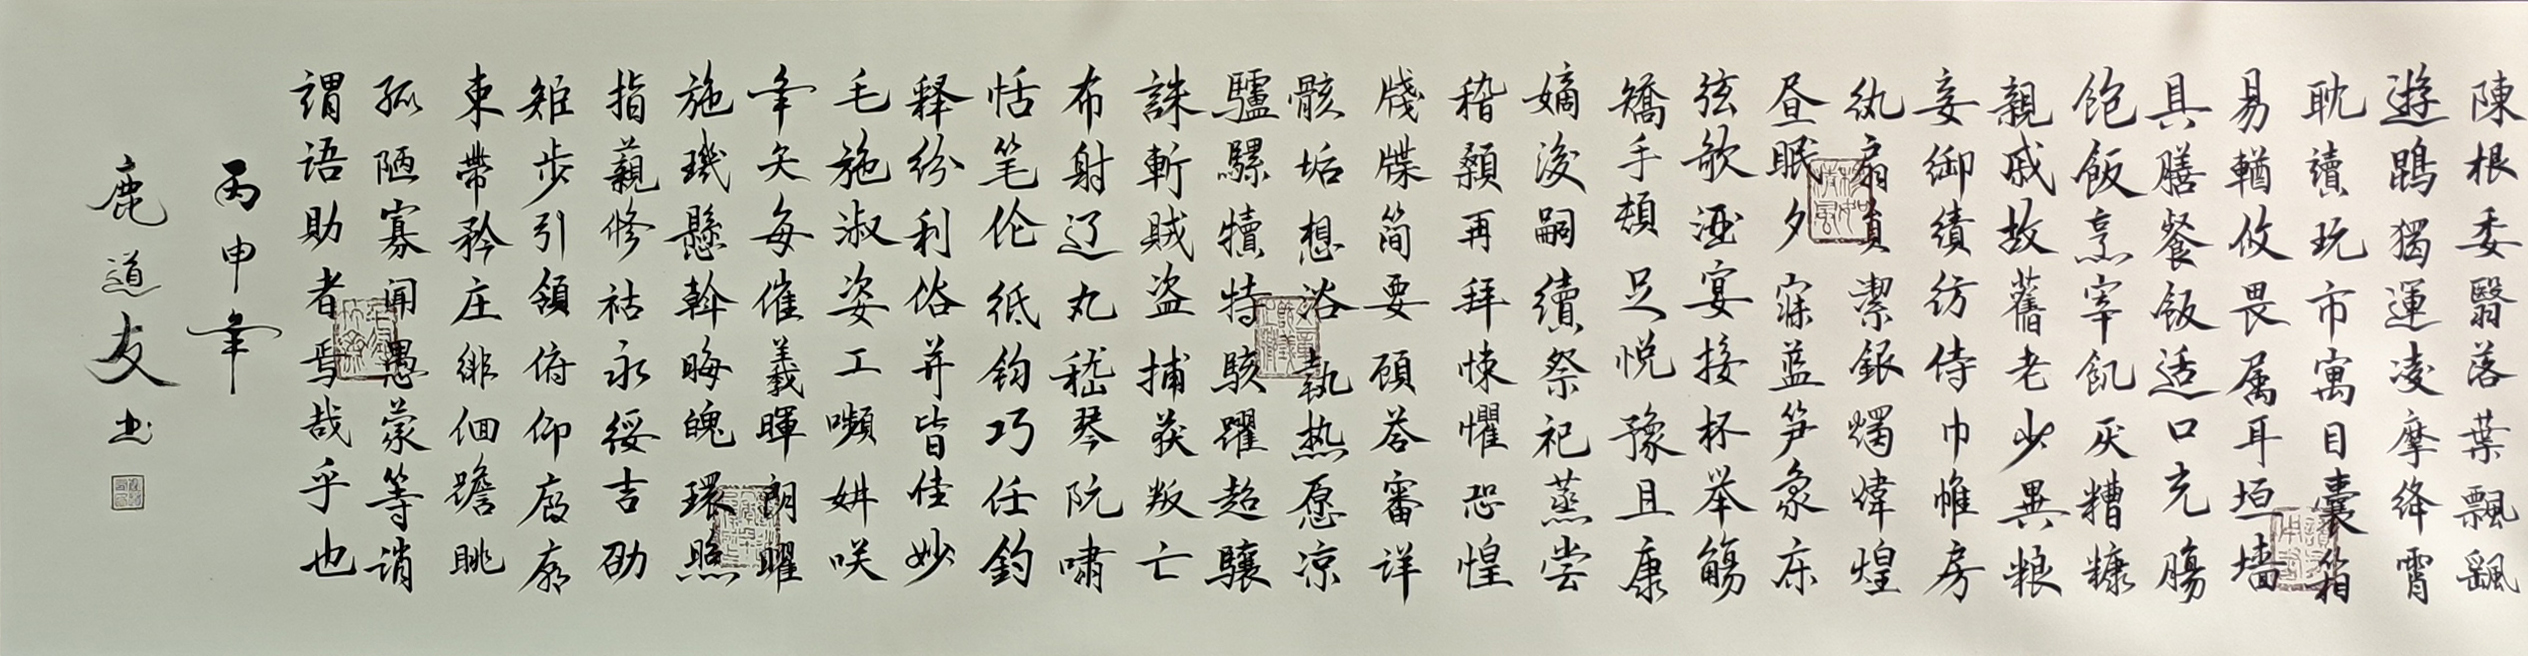 陳根委翳落葉飄飖
遊鵾獨運凌摩绛霄
耽讀玩市寓目囊箱
易輶攸畏属耳垣墙
具膳餐饭适口充腸
飽飯烹宰飢厌糟糠
親戚故舊老少異粮
妾御績紡侍巾帷房
纨扇員潔銀燭煒煌
昼眠夕寐蓝笋象床
弦歌酒宴接杯举觴
矯手頓足悦豫且康
嫡後嗣續祭祀蒸尝
稽顙再拜悚懼恐惶
牋牒简要顧答審详
骸垢想浴執热愿凉
驢騾犢特駭躍超驤
誅斬賊盗捕获叛亡
布射辽丸嵇琴阮嘯
恬笔伦纸钧巧任釣
释纷利俗并皆佳妙
毛施淑姿工嚬妍咲
年矢每催羲暉朗曜
施璣懸斡晦魄環照
指薪修祜永綏吉劭
矩步引領俯仰廊廟
束帶矜庄徘徊瞻眺
孤陋寡聞愚蒙等誚
謂语助者焉哉乎也
丙申年
鹿道友书